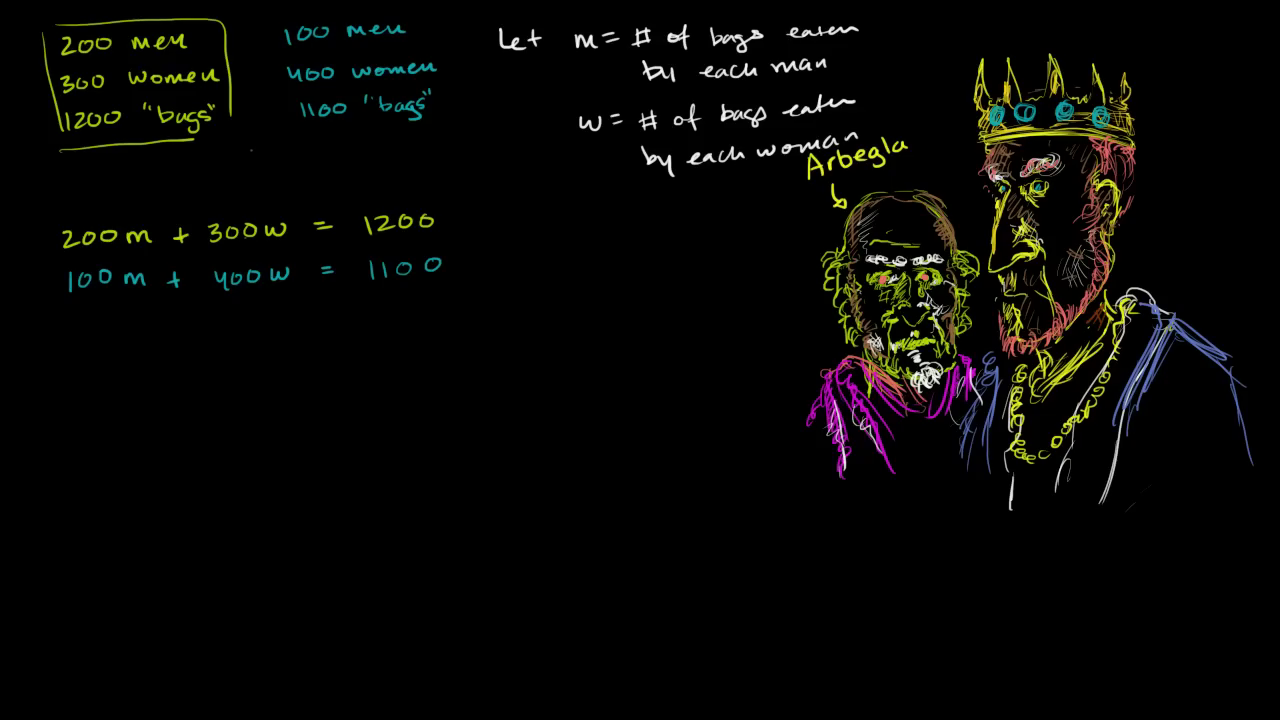 200 men
300 women
1200 "bags"
100 men
400 women
1100 "bags"
Let m = # of bags eaten
by each man
w = # of bags eaten
by each woman
Arbegla
200m + 300w = 1200
100m + 400w = 1100